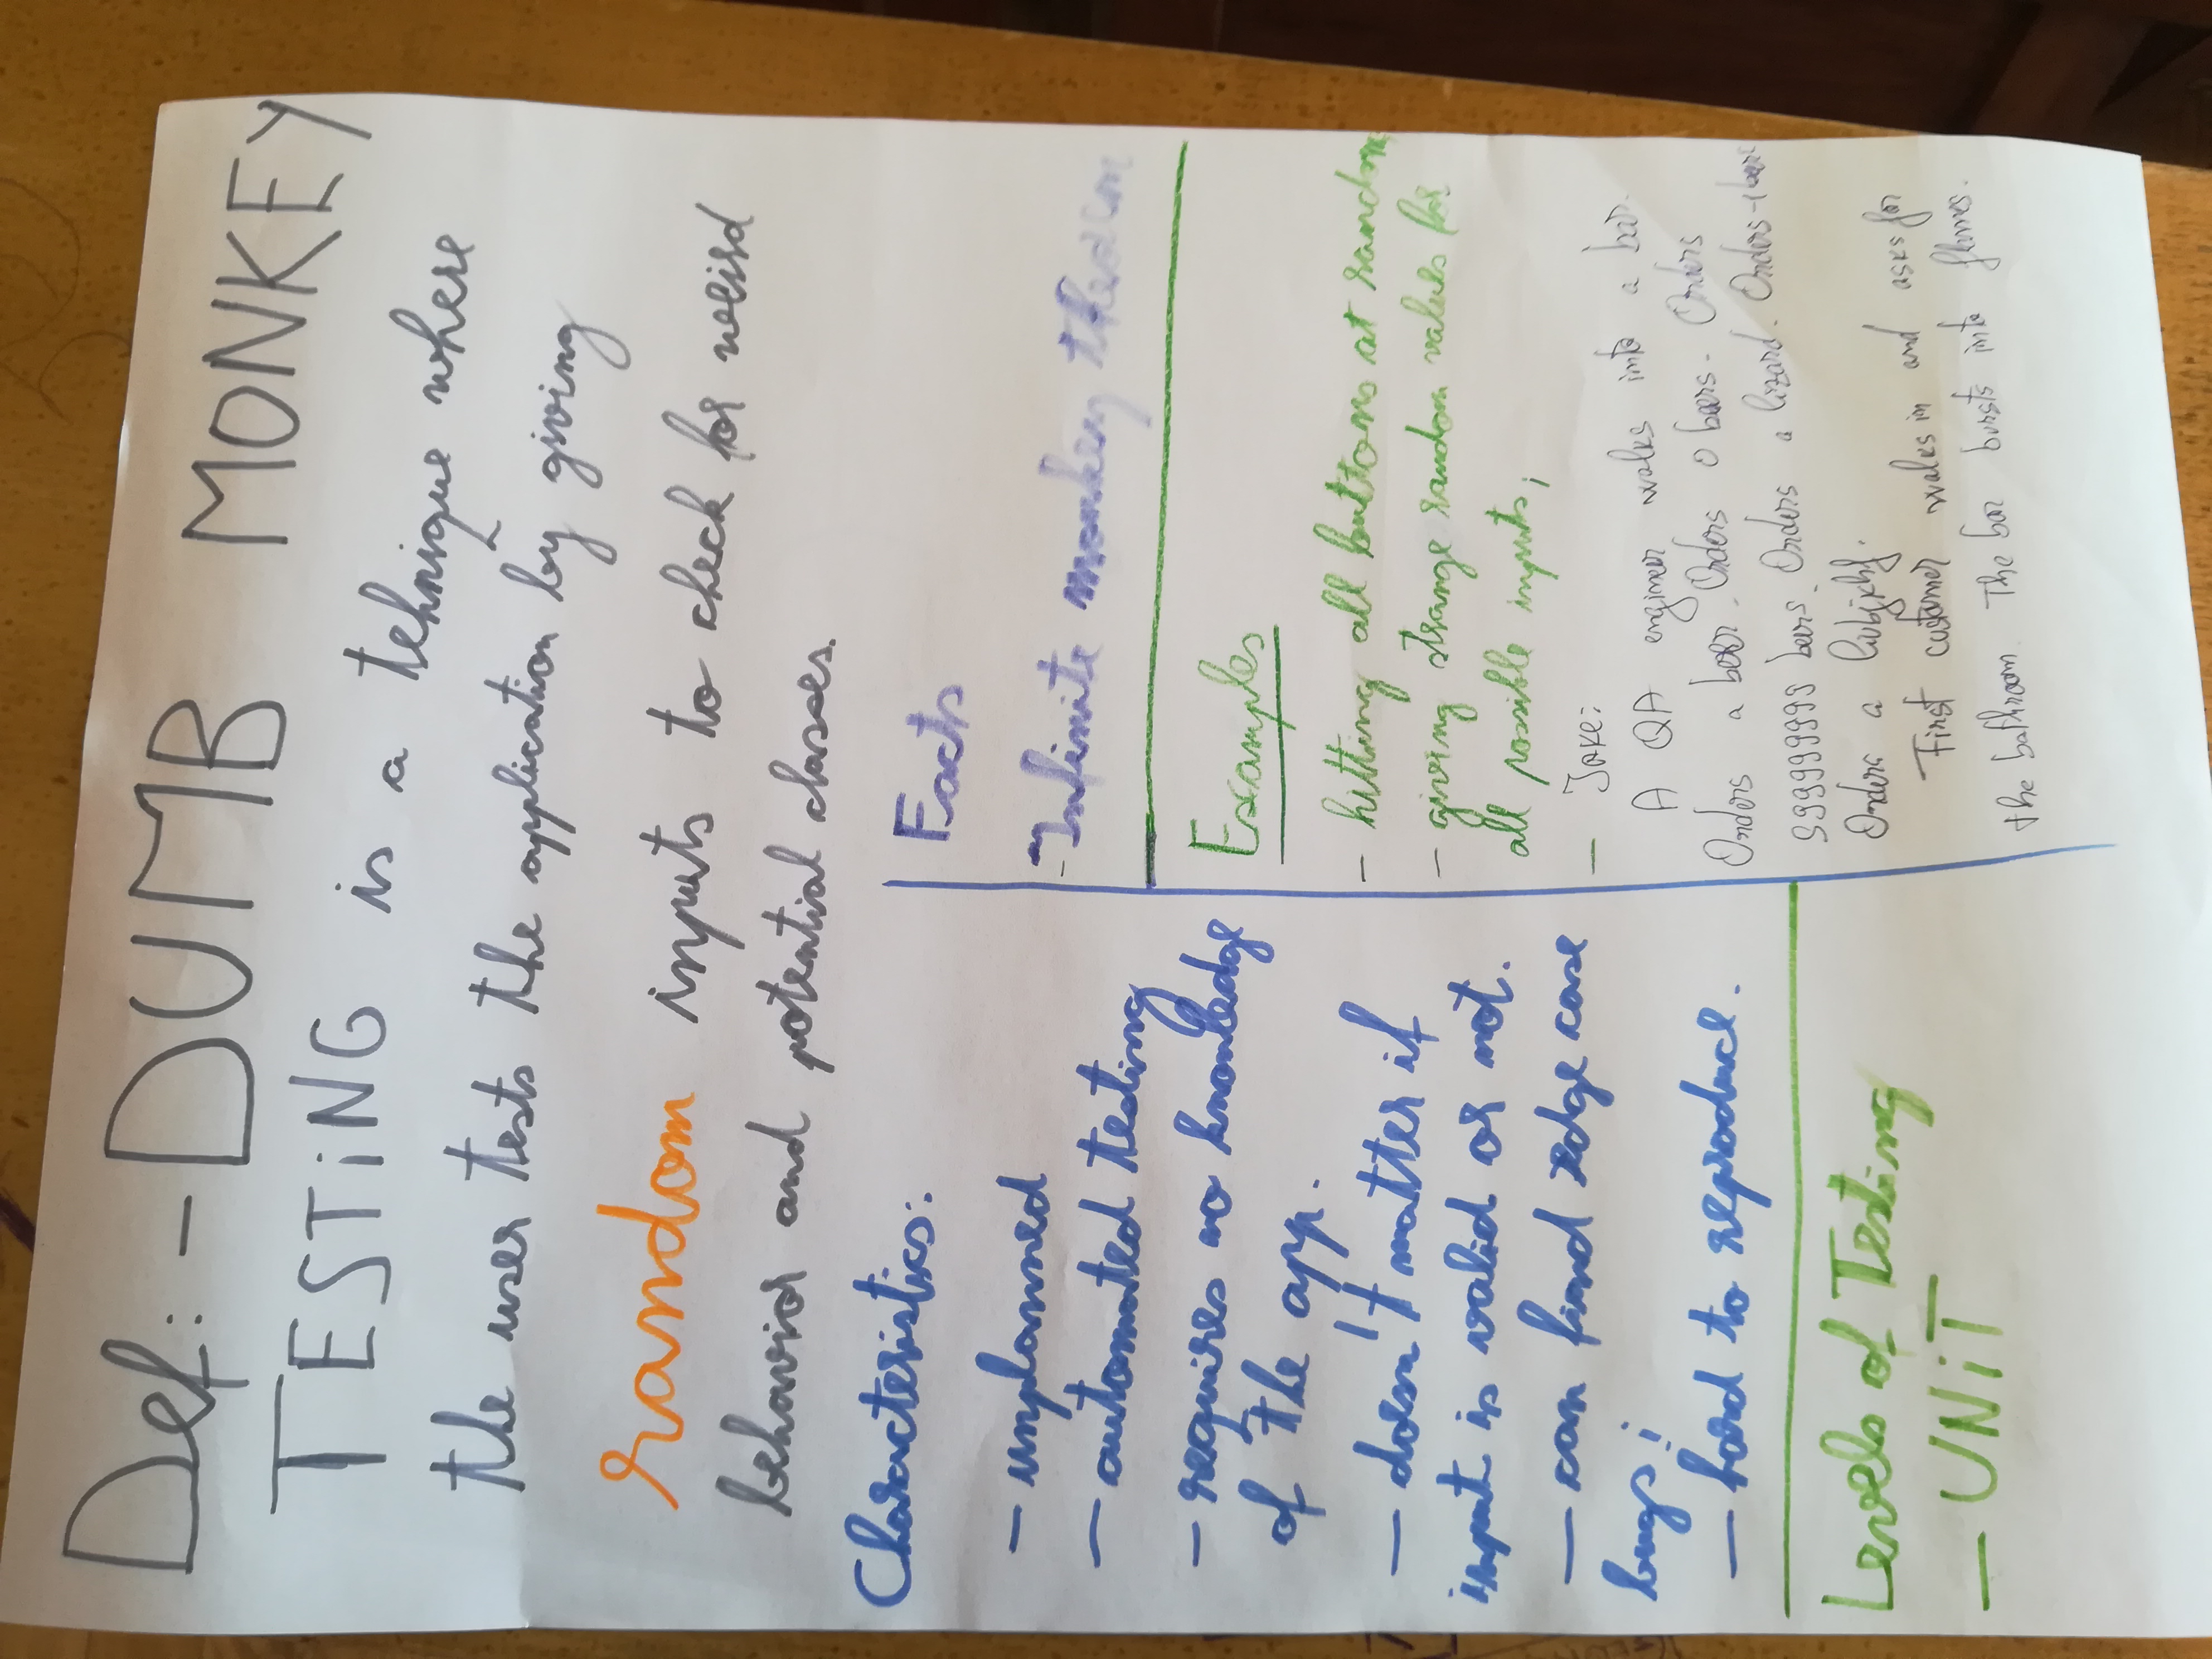 Def: - DUMB MONKEY
TESTiNG is a tehnique where
the user tests the application by giving
random inputs to check for weird
behavior and potential chases.
Characteristics:
- unplanned
- automated testing
- requires no knowledge
of the app.
- doesn't matter if
input is valid or not.
- can find edge case
bugs;
- hard to reproduce.
Levels of Testing
- UNiT
Facts
- Infinite monkey theorem
Examples
- hitting all buttons at random
- giving strange random values for
all possible inputs;
- Joke:
A QA engineer walks into a bar.
Orders a beer. Orders 0 beers. Orders
999999999 beers. Orders a lizard. Orders -1 beers
Orders a
First customer walks in and asks for
the bathroom. The bar bursts into flames.